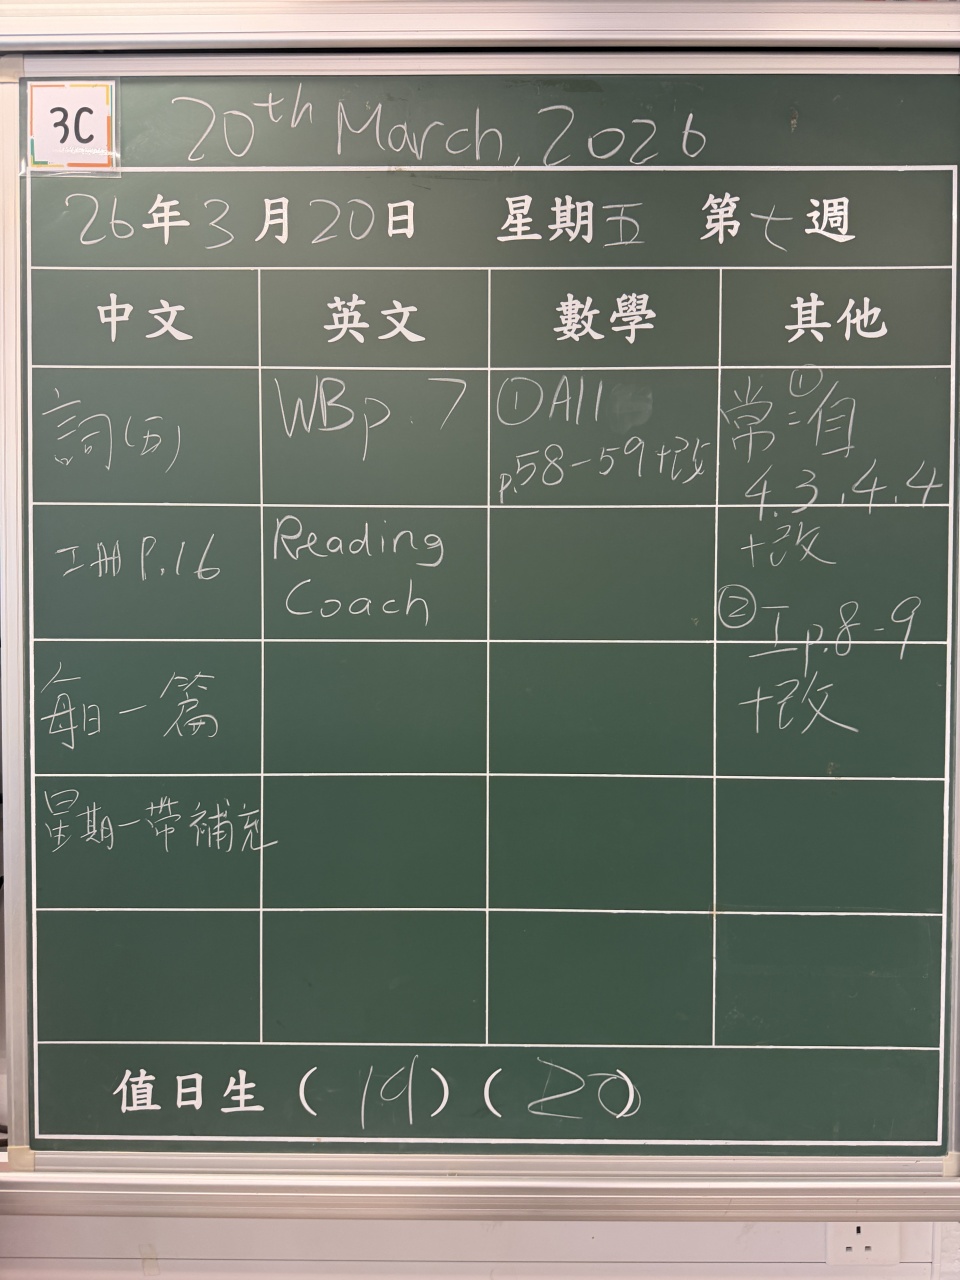 3C
20th March, 2026
26年3月20日 星期五 第七週
中文 英文 數學 其他
詞(五)
WB p.7
①A11
p.58-59+改
①
常:自
4.3,4.4
+改
工冊P.16
Reading
Coach
②工p.8-9
+改
每日一篇
星期一帶補充
值日生(19)(20)